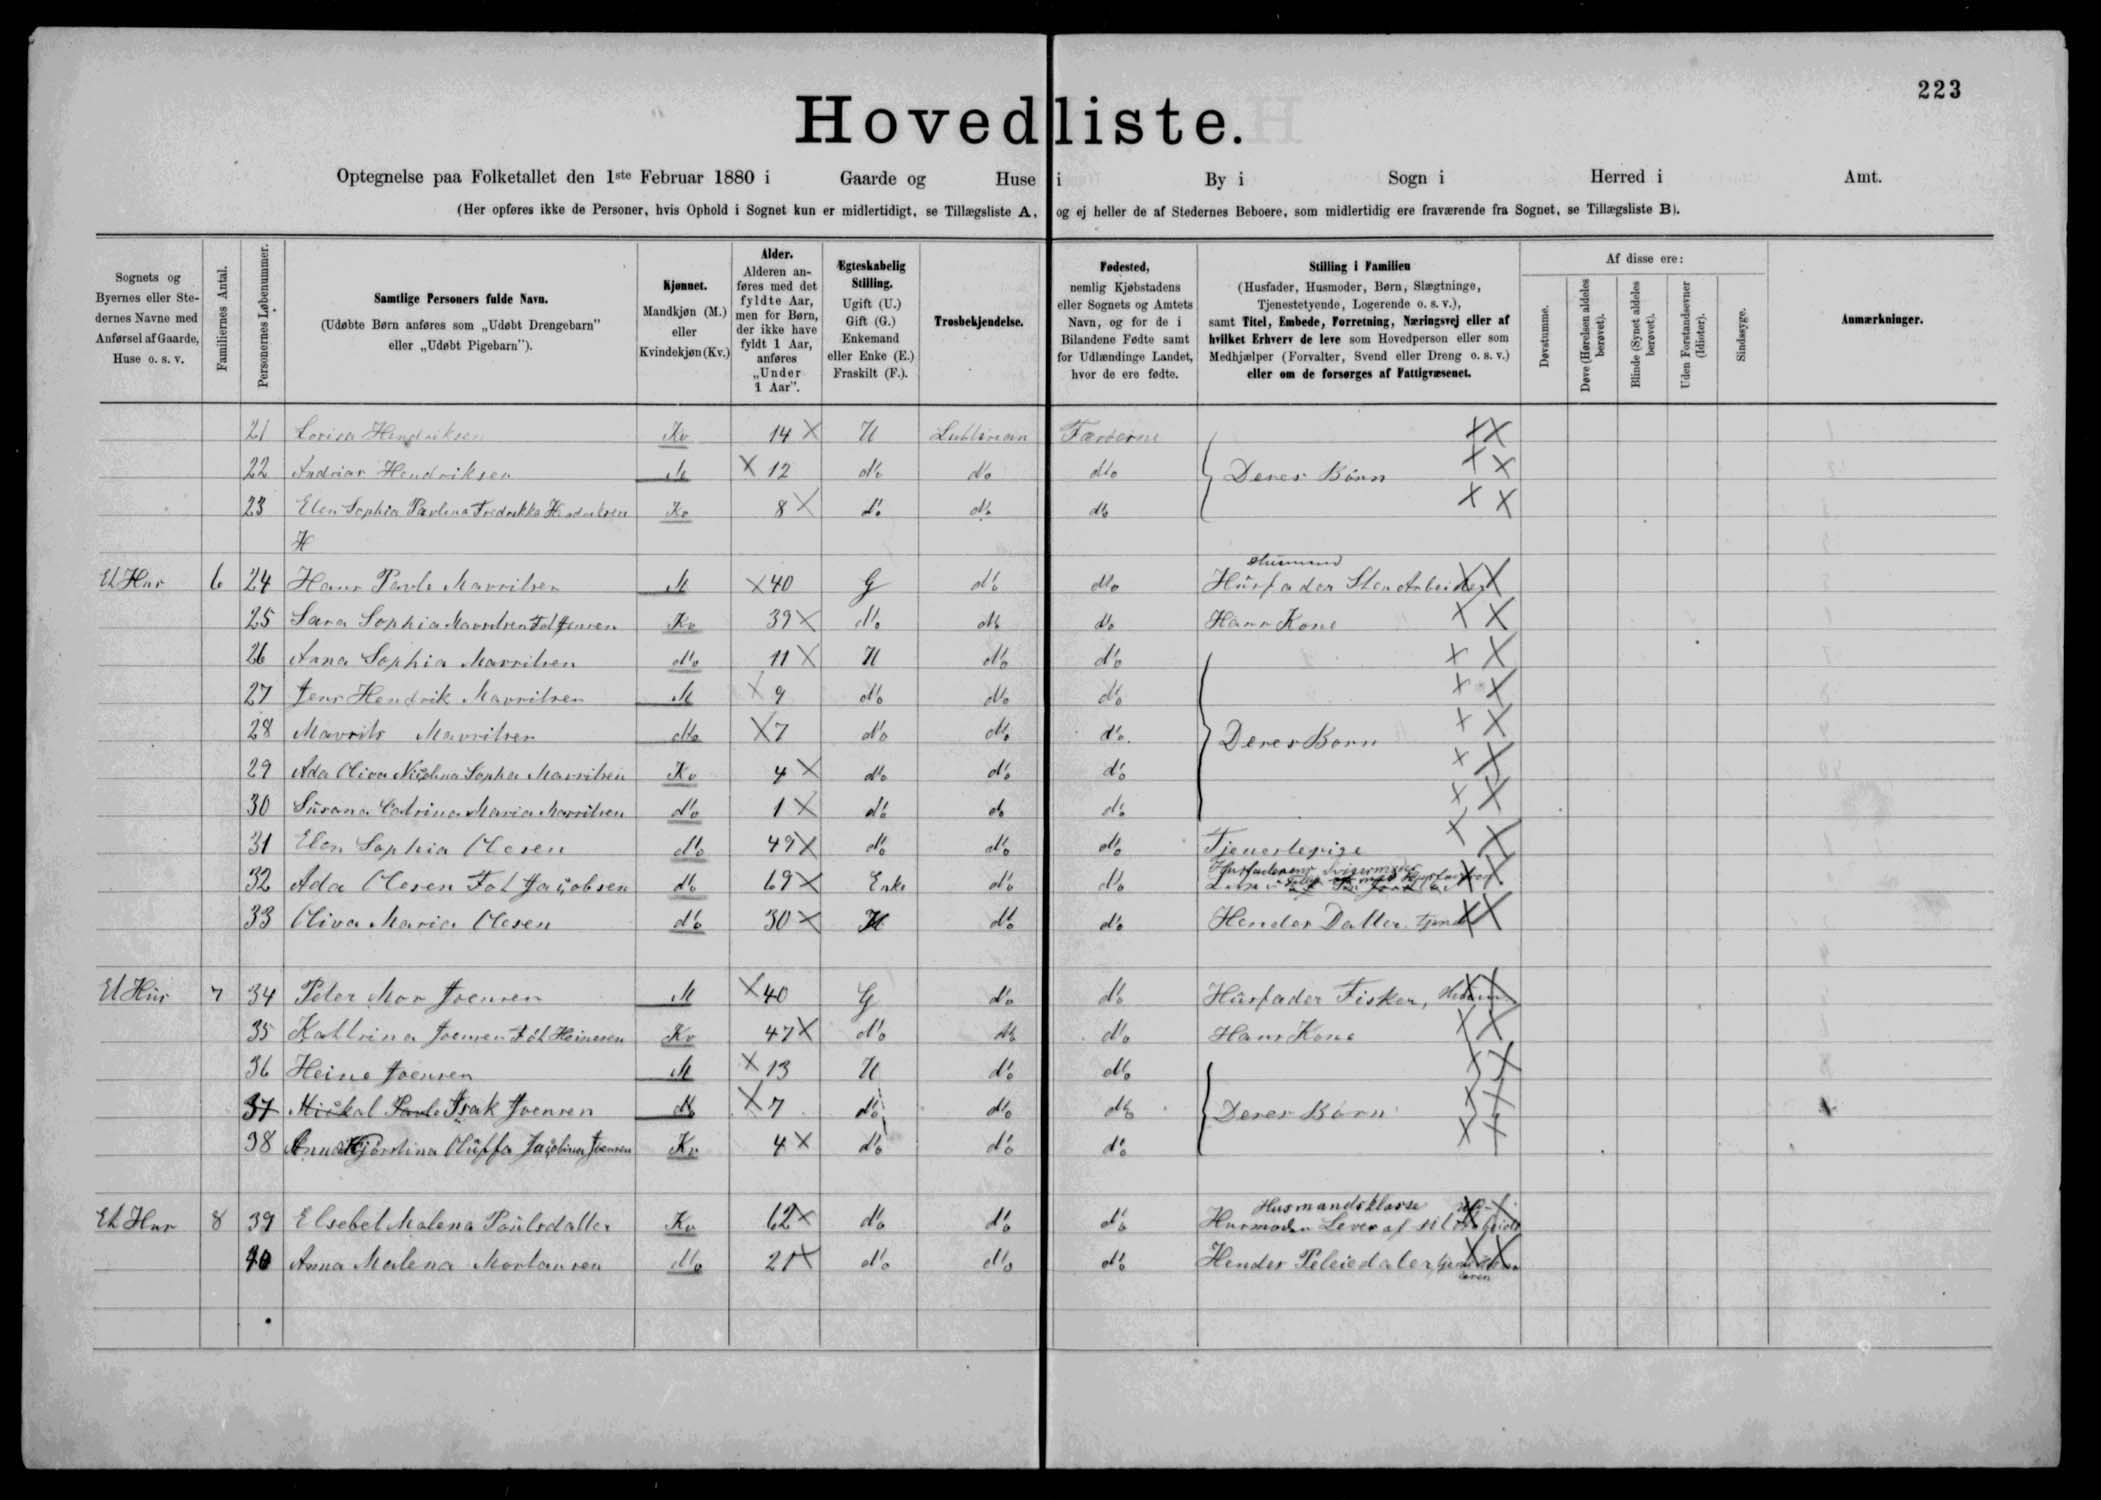 223
Hovedliste.
Optegnelse paa Folketallet den 1ste Februar 1880 i Gaarde og Huse i By i Sogn i Herred i Amt.
(Her opføres ikke de Personer, hvis Ophold i Sognet kun er midlertidigt, se Tillægsliste A, og ej heller de af Stedernes Beboere, som midlertidig ere fraværende fra Sognet, se Tillægsliste B).
Sognets og Byernes eller Stedernes Navne med Anførsel af Gaarde, Huse o. s. v.
Familiernes Antal.
Personernes Løbenummer.
Samtlige Personers fulde Navn.
(Udøbte Børn anføres som „Udøbt Drengebarn" eller „Udøbt Pigebarn").
Kjønnet.
Mandkjøn (M.) eller Kvindekjøn (Kv.)
Alder.
Alderen anføres med det fyldte Aar, men for Børn, der ikke have fyldt 1 Aar, anføres „Under 1 Aar".
Ægteskabelig Stilling.
Ugift (U.) Gift (G.) Enkemand eller Enke (E.) Fraskilt (F.).
Trosbekjendelse.
Fødested,
nemlig Kjøbstadens eller Sognets og Amtets Navn, og for de i Bilandene Fødte samt for Udlændinge Landet, hvor de ere fødte.
Stilling i Familien
(Husfader, Husmoder, Børn, Slægtninge, Tjenestetyende, Logerende o. s. v.),
samt Titel, Embede, Forretning, Næringsvej eller af hvilket Erhverv de leve som Hovedperson eller som Medhjælper (Forvalter, Svend eller Dreng o. s. v.) eller om de forsørges af Fattigvæsenet.
Af disse ere:
Døvstumme.
Døve (Hørelsen aldeles berøvet).
Blinde (Synet aldeles berøvet).
Uden Forstandsevner (Idioter).
Sindssyge.
Anmærkninger.
21 Lovisa Hendriksen Kv 14 X U Luthersan Færöerne XX
22 Andrias Hendriksen M X 12 do do do Deres Börn XX
23 Elen Sophia Pavlena Fredrikka Hendriksen Kv 8 X do do do XX
H
Et Hus 6 24 Hans Pavli Mavritsen M X 40 G do do Husfader Sten Arbeider XX
25 Sara Sophia Mavritsen Föt Jensen Kv 39 X do do do Hans Kone XX
26 Anna Sophia Mavritsen do 11 X U do do XX
27 Jens Hendrik Mavritsen M X 9 do do do XX
28 Mavrits Mavritsen do X 7 do do do Deres Born XX
29 Ada Oliva Nicolina Sophia Mavritsen Kv 4 X do do do XX
30 Susana Catrina Maria Mavritsen do 1 X do do do XX
31 Elen Sophia Olesen do 49 X do do do Tjenestepige XX
32 Ada Olesen Föt Jacobsen do 69 X Enke do do Husfaderens Svigermoder XX
33 Oliva Maria Olesen do 30 X U do do Hendes Datter XX
Et Hus 7 34 Peter Mor Joensen M X 40 G do do Husfader Fisker, XX
35 Kattrina Joensen Föt Heinesen Kv 47 X do do do Hans Kone XX
36 Heine Joensen M X 13 U do do XX
37 Mickal Pavli Isak Joensen do X 7 do do do Deres Börn XX
38 Anna Kjörstina Oluffa Jacobina Joensen Kv 4 X do do do XX
Husmandsklasse
Et Hus 8 39 Elsebet Malena Poulsdatter Kv 62 X do do do Husmoder Lever af XX
40 Anna Malena Mortansen do 21 X do do do Hendes Pleiedater XX